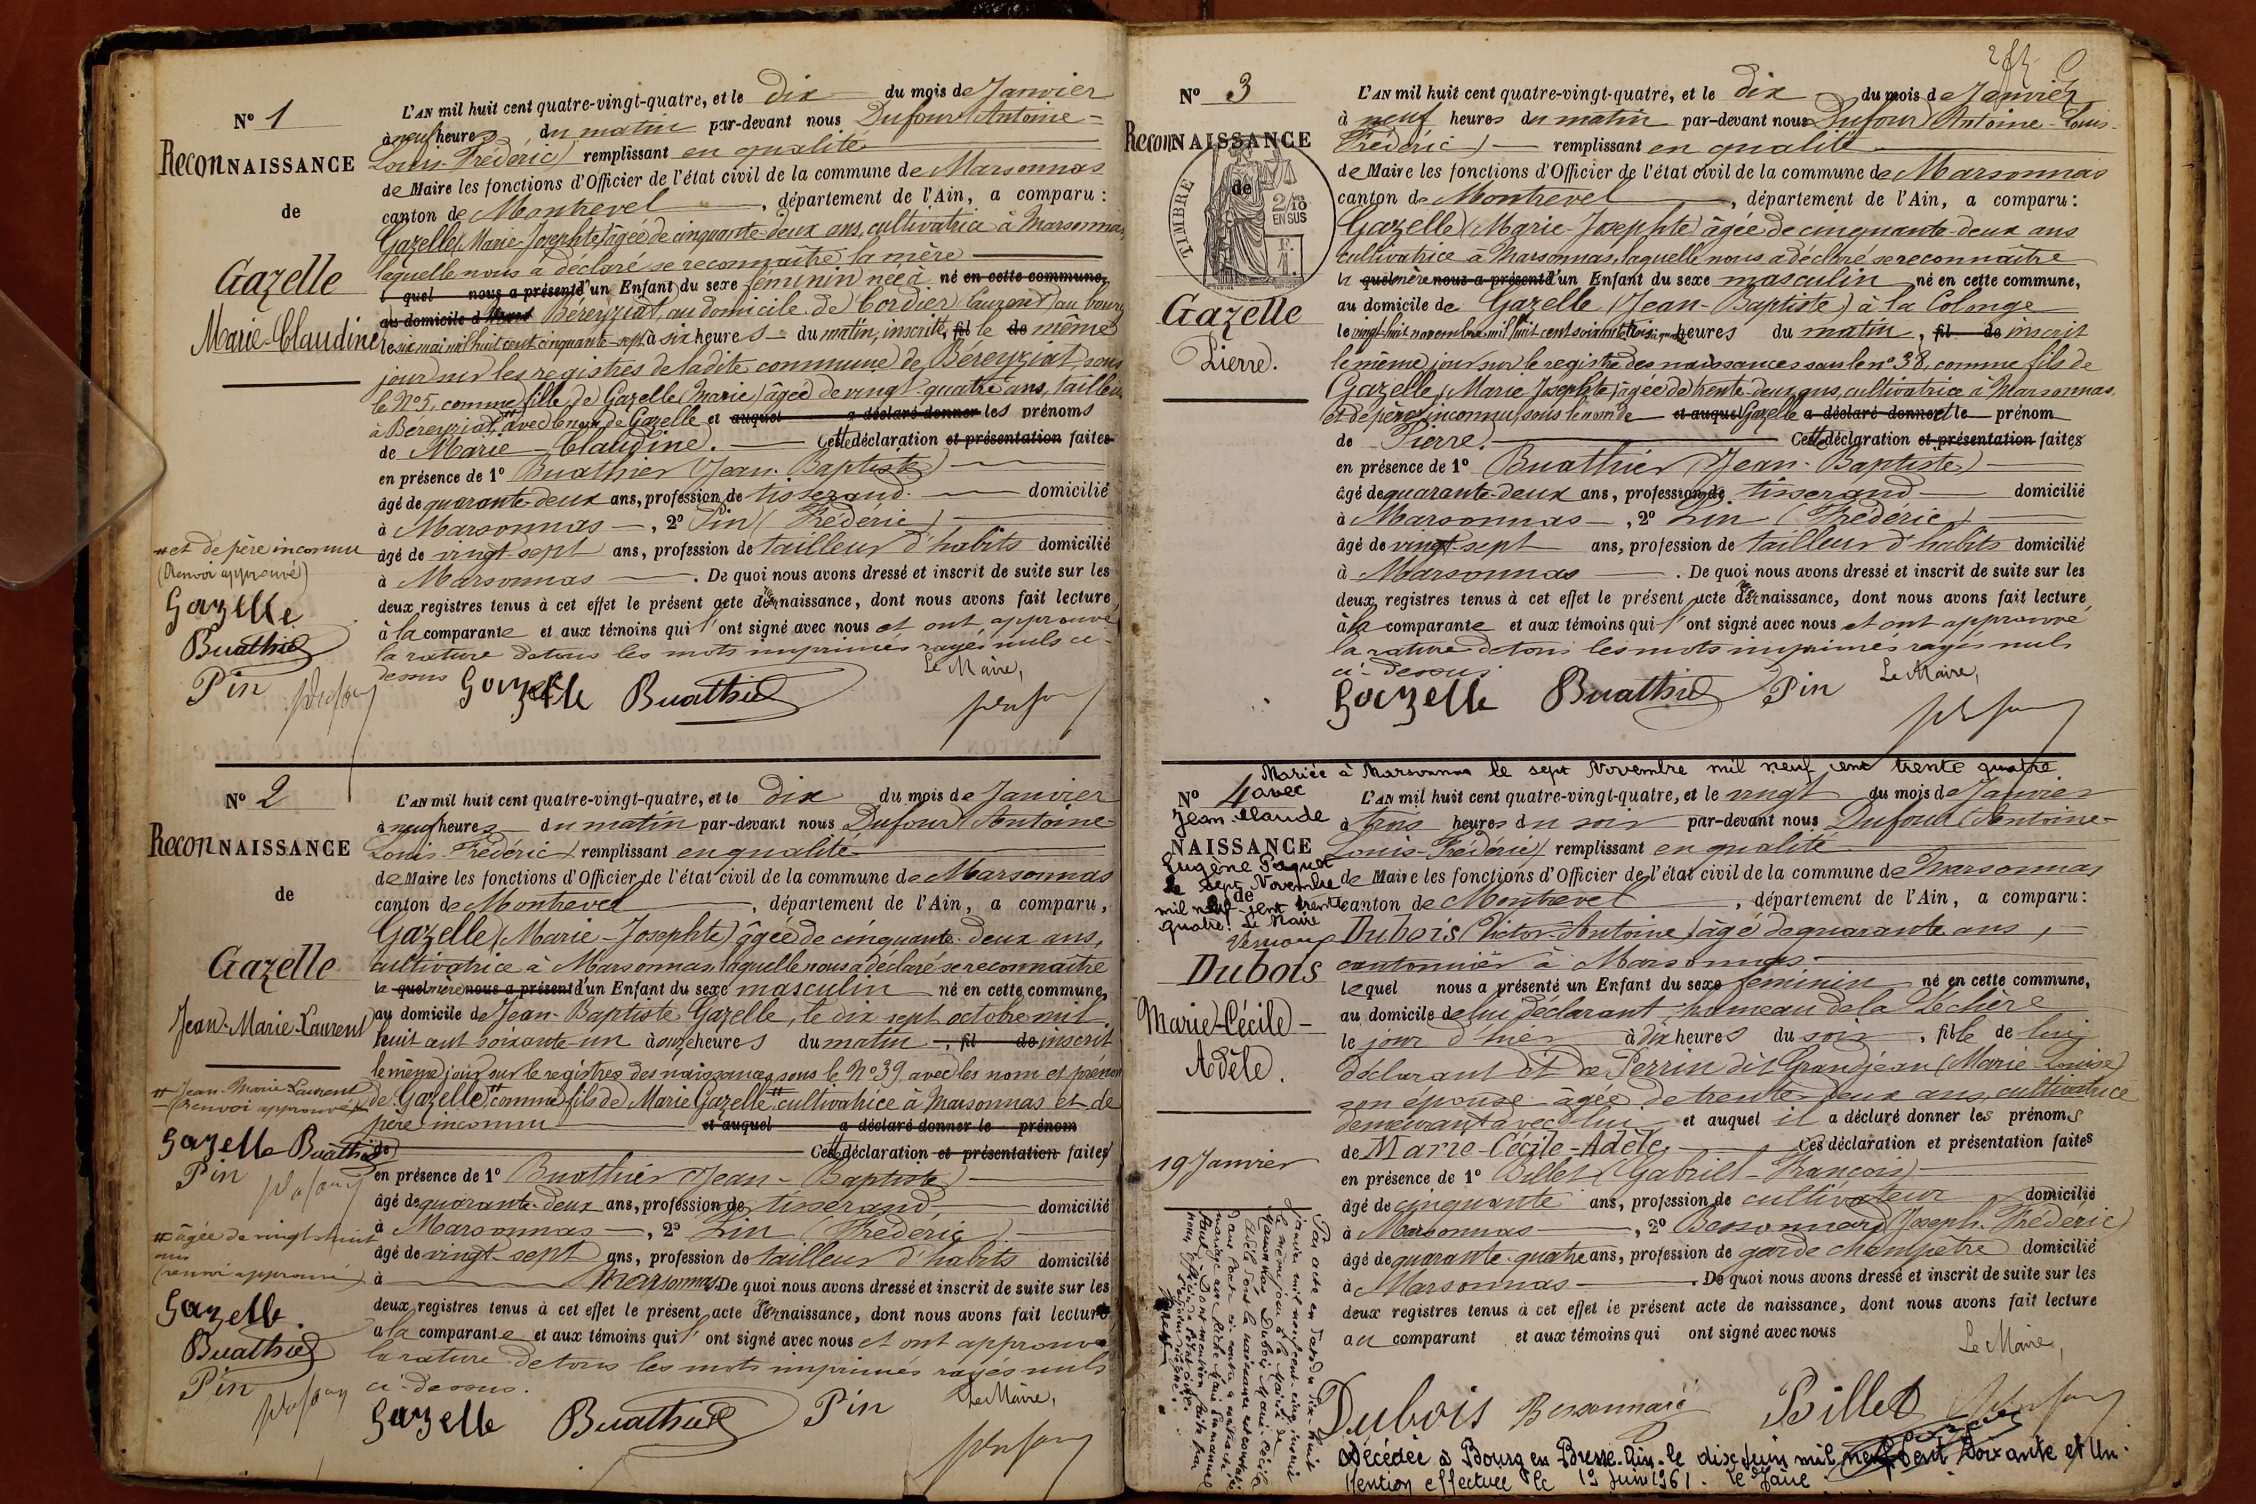 N° 1
ReconNAISSANCE
de
Gazelle
Marie-Claudine
L'AN mil huit cent quatre-vingt-quatre, et le dix du mois de Janvier
à neuf heures du matin par-devant nous Dufour (Antoine-
Louis-Frédéric) remplissant en qualité
de Maire les fonctions d'Officier de l'état civil de la commune de Marsonnas
canton de Montrevel, département de l'Ain, a comparu :
Gazelle (Marie-Josephte) âgée de cinquante-deux ans, cultivatrice à Marsonnas
laquelle nous a déclaré se reconnaître la mère
l quel nous a présenté d'un Enfant du sexe féminin née à né en cette commune,
au domicile d Béreyziat, au domicile de Cordier Lauzent au bourg
le six mai mil huit cent cinquante-sept à six heures du matin, inscrite, fil le de même
jour sur les registres de ladite commune de Béreyziat, sous
le N° 5, comme fille de Gazelle (Marie) âgée de vingt-quatre ans, tailleuse
à Béreyziat, # avec le nom de Gazelle et auquel a déclaré donner les prénoms
de Marie Claudine. Cette déclaration et présentation faites
en présence de 1° Buathier (Jean-Baptiste)
âgé de quarante-deux ans, profession de tisserand domicilié
à Marsonnas, 2° Pin (Frédéric)
âgé de vingt-sept ans, profession de tailleur d'habits domicilié
à Marsonnas. De quoi nous avons dressé et inscrit de suite sur les
deux registres tenus à cet effet le présent acte de reconnaissance, dont nous avons fait lecture
à la comparante et aux témoins qui l'ont signé avec nous et ont approuvé
la rature de tous les mots imprimés rayés nuls ci-
dessus
Le Maire,
Gazelle Buathier
# et de père inconnu
(Renvoi approuvé)
Gazelle
Buathier
Pin
N° 2
ReconNAISSANCE
de
Gazelle
Jean-Marie-Laurent
L'AN mil huit cent quatre-vingt-quatre, et le dix du mois de Janvier
à neuf heures du matin par-devant nous Dufour (Antoine-
Louis-Frédéric) remplissant en qualité
de Maire les fonctions d'Officier de l'état civil de la commune de Marsonnas
canton de Montrevel, département de l'Ain, a comparu,
Gazelle (Marie-Josephte) âgée de cinquante-deux ans,
cultivatrice à Marsonnas, laquelle nous a déclaré se reconnaître
la quel mère nous a présent d'un Enfant du sexe masculin né en cette commune,
au domicile de Jean-Baptiste Gazelle, le dix sept octobre mil
huit cent soixante-un à onze heures du matin, fil de inscrit
le même jour sur le registres des naissances sous le N° 39 avec les nom et prénom
de Gazelle # comme fils de Marie Gazelle, # cultivatrice à Marsonnas et de
père inconnu et auquel a déclaré donner le prénom
de Cette déclaration et présentation faites
en présence de 1° Buathier (Jean-Baptiste)
âgé de quarante-deux ans, profession de tisserand, domicilié
à Marsonnas, 2° Pin (Frédéric)
âgé de vingt-sept ans, profession de tailleur d'habits domicilié
à Marsonnas De quoi nous avons dressé et inscrit de suite sur les
deux registres tenus à cet effet le présent acte de reconnaissance, dont nous avons fait lecture
à la comparante et aux témoins qui l'ont signé avec nous et ont approuvé
la rature de tous les mots imprimés rayés nuls
ci-dessus.
Le Maire,
Gazelle Buathier Pin
# Jean-Marie-Laurent
(renvoi approuvé)
Gazelle Buathier
Pin
# âgée de vingt-huit
ans
(renvoi approuvé)
Gazelle.
Buathier
Pin
N° 3
ReconNAISSANCE
de
TIMBRE
2/10
EN SUS
Gazelle
Pierre.
L'AN mil huit cent quatre-vingt-quatre, et le dix du mois de Janvier
à neuf heures du matin par-devant nous Dufour (Antoine-Louis-
Frédéric) remplissant en qualité
de Maire les fonctions d'Officier de l'état civil de la commune de Marsonnas
canton de Montrevel, département de l'Ain, a comparu :
Gazelle (Marie-Josephte) âgée de cinquante-deux ans
cultivatrice à Marsonnas, laquelle nous a déclaré se reconnaître
la quel mère nous a présenté d'un Enfant du sexe masculin né en cette commune,
au domicile de Gazelle (Jean-Baptiste) à la Colonge
le vingt-huit novembre mil huit cent soixante heures du matin, fil de inscrit
le même jour sur le registre des naissances sous le n° 38, comme fils de
Gazelle (Marie Josephte) âgée de trente-deux ans, cultivatrice à Marsonnas,
et de père inconnu, sous le nom de et auquel Gazelle a déclaré donner et le prénom
de Pierre. Cette déclaration et présentation faites
en présence de 1° Buathier (Jean-Baptiste)
âgé de quarante-deux ans, profession de tisserand domicilié
à Marsonnas, 2° Pin (Frédéric)
âgé de vingt-sept ans, profession de tailleur d'habits domicilié
à Marsonnas. De quoi nous avons dressé et inscrit de suite sur les
deux registres tenus à cet effet le présent acte de reconnaissance, dont nous avons fait lecture
à la comparante et aux témoins qui l'ont signé avec nous et ont approuvé
la rature de tous les mots imprimés rayés nuls
ci-dessus
Le Maire,
Gazelle Buathier Pin
Mariée à Marsonnas le sept Novembre mil neuf cent trente quatre
avec
Jean-Claude
Eugène Paquet
le sept Novembre
mil neuf-cent trente
quatre. Le Maire
N° 4
NAISSANCE
de
Dubois
Marie-Cécile-
Adèle.
19 Janvier
L'AN mil huit cent quatre-vingt-quatre, et le vingt du mois de Janvier
à trois heures du soir par-devant nous Dufour (Antoine-
Louis-Frédéric) remplissant en qualité
de Maire les fonctions d'Officier de l'état civil de la commune de Marsonnas
canton de Montrevel, département de l'Ain, a comparu :
Dubois (Victor-Antoine) âgé de quarante ans,
cantonnier à Marsonnas
lequel nous a présenté un Enfant du sexe féminin né en cette commune,
au domicile de lui déclarant, hameau de la Léchère
le jour d'hier à dix heures du soir, fille de lui
déclarant et de Perrin dit Grandjean (Marie-Louise)
son épouse âgée de trente-deux ans, cultivatrice
demeurant avec lui et auquel il a déclaré donner les prénoms
de Marie-Cécile-Adèle. Ces déclaration et présentation faites
en présence de 1° Billet (Gabriel-François)
âgé de cinquante ans, profession de cultivateur domicilié
à Marsonnas, 2° Bessonnard (Joseph-Frédéric)
âgé de quarante-quatre ans, profession de garde champêtre domicilié
à Marsonnas. De quoi nous avons dressé et inscrit de suite sur les
deux registres tenus à cet effet le présent acte de naissance, dont nous avons fait lecture
au comparant et aux témoins qui ont signé avec nous
Le Maire,
Dubois Bessonnard Billet
Par acte en date du dix-huit
Janvier mil neuf cent cinq, inscrit
le même jour à la Mairie de
Marsonnas, Dubois Marie-Cécile
Adèle dont la naissance est constatée
dans l'acte ci-contre a contracté
mariage avec
Décédée à Bourg en Bresse-Ain-le dix Juin mil neuf cent Soixante et Un.
Mention effectuée le 12 Juin 1961. le Maire